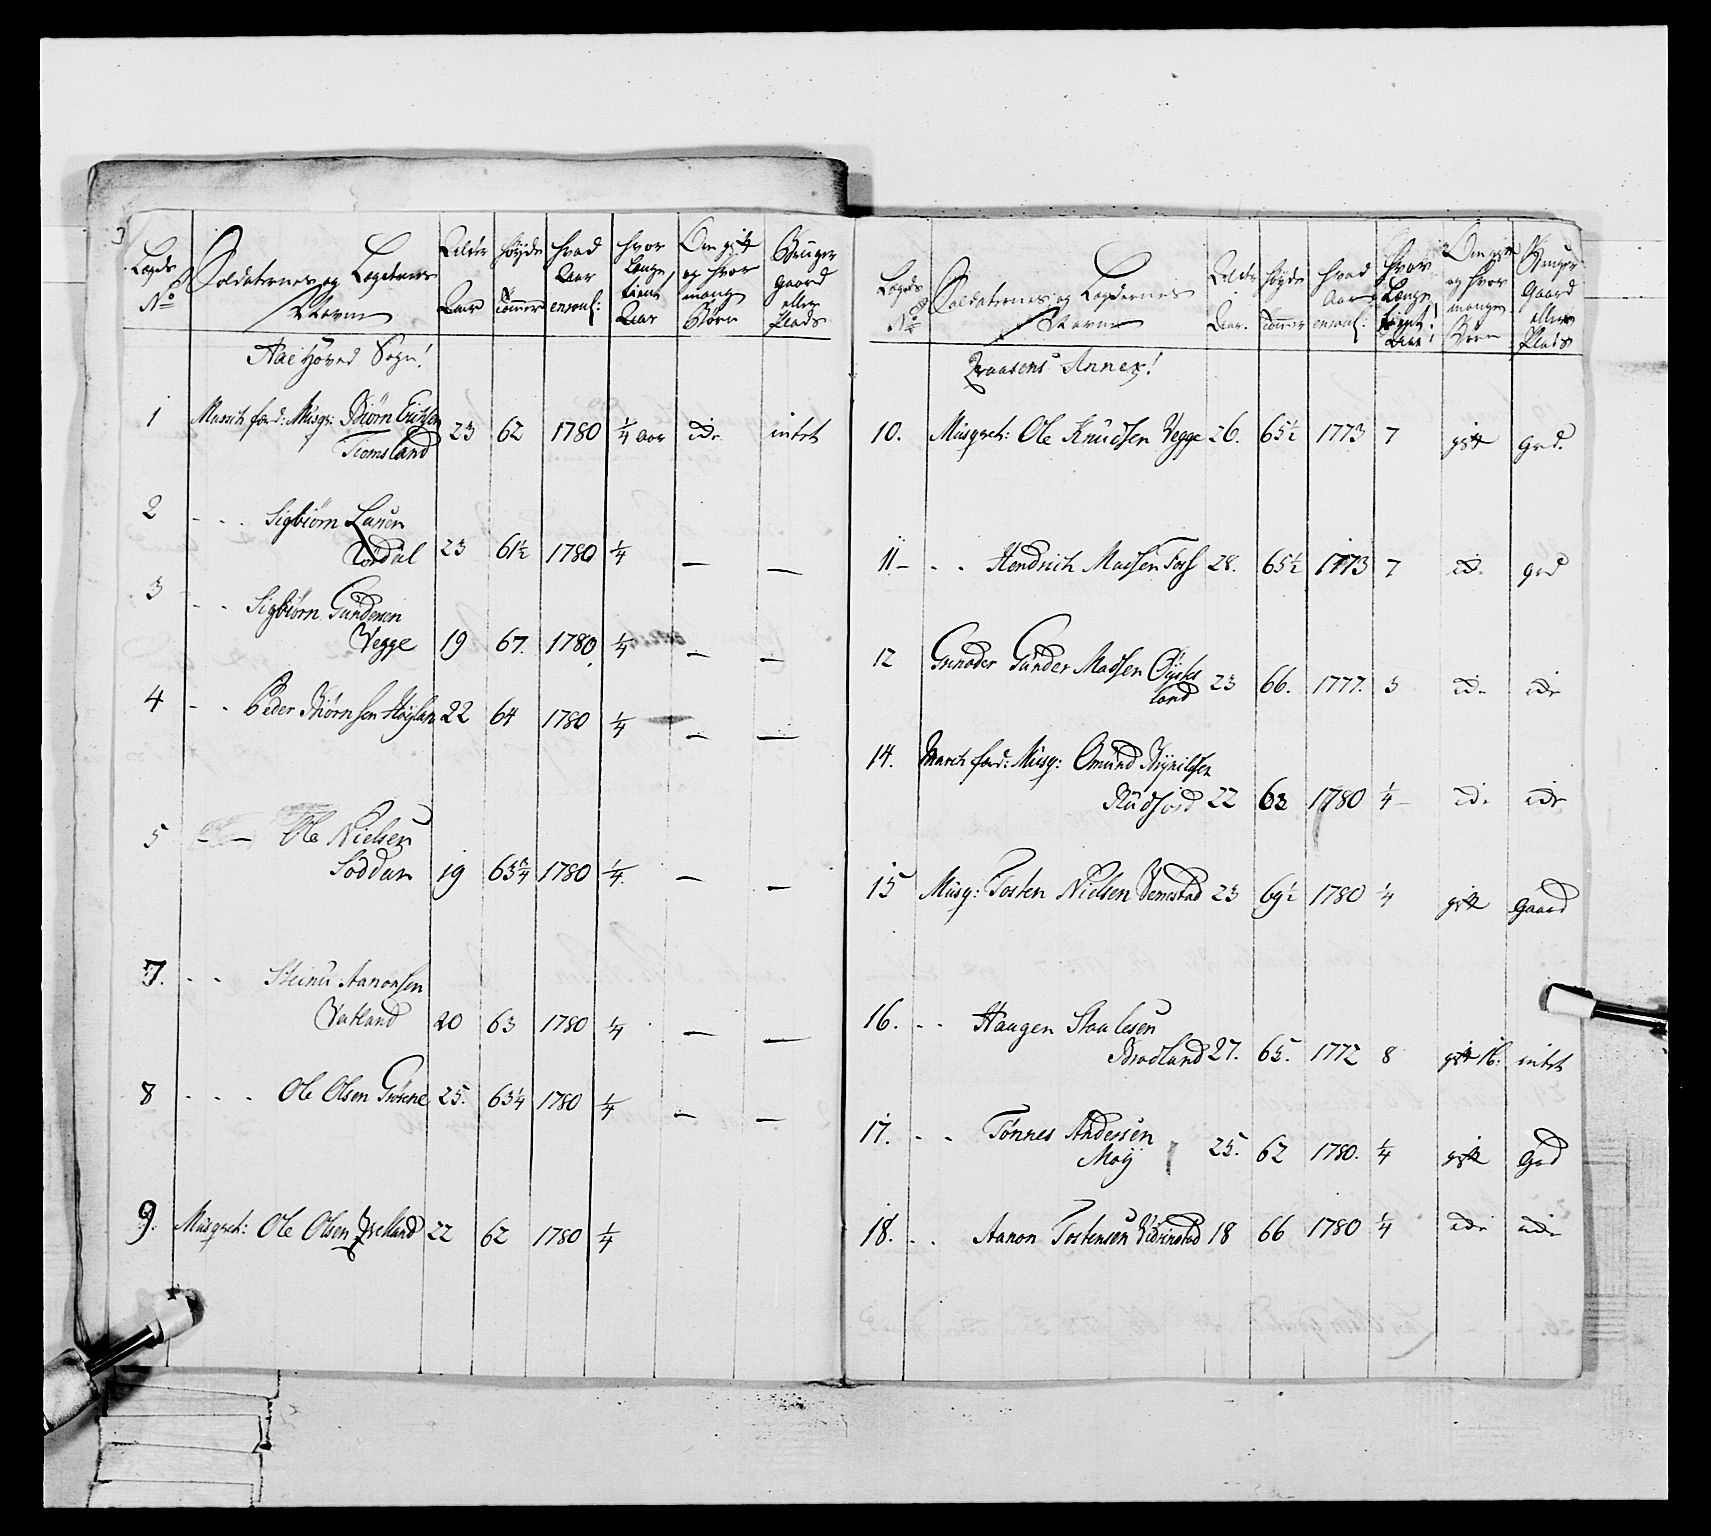 3
Lægds No
Soldaternes og Lægdernes Navne
Alder Aar
Høyde Tommer
hvad Aar enroul:
hvor Længe tient Aar
Om gift og hvor mange Børn
Bruger gaard eller Plads
Sogn!
1 March ferd: Musqr: Biørn Erichsen 23 62 1780 1/4 aar ide intet
Tiomsland
2 - - - Sigbiørn Larsen
23 61½ 1780 1/4 — —
3 - - Sigbiørn Gundersen
Vegge 19 67. 1780 1/4 — —
4 - - Peder Biørnsen Høyland 22 64 1780 1/4 — —
5 — — Ole Nielsen
Soddan 19 63¾ 1780 1/4 — —
7. - - Aanonsen
Vatland 20 63 1780 1/4 — —
8 - - - Ole Olsen 25. 63¼ 1780 1/4 — —
9. Musqret: Ole Olsen 22 62 1780 1/4
Lægds No
Soldaternes og Lægdernes Navne
Alder Aar.
høyde Tommer
hvad Aar enroul:
Hvor Længe tient! Aar!
Om gift og hvor mange Børn
Bruger Gaard eller Plads
Annex!
10. Musqret: Ole Knudsen Vegge 26. 65½ 1773 7 gift grd.
11 - - - Hendrich Madsen Foss 28. 65½ 1773 7 id. grd
12 Grenader Gunder Madsen Øysæ
land 23 66. 1777. 3 ide ide
14. March ferd: Musq: Omund Brynildsen
Rudsford 22 63 1780 1/4 ide ide
15 Musq: Tosten Nielsen Vemestad 23 69½ 1780 1/4 gift Gaard
16. - - Haagen Staalesen
Brodland 27. 65. 1772 8 gift 1b: intet
17. - - Tønnes Andersen
Moy 25. 62 1780. 1/4 gift grd
18. - - Aanon Tostensen 18 66 1780 1/4 ide ide